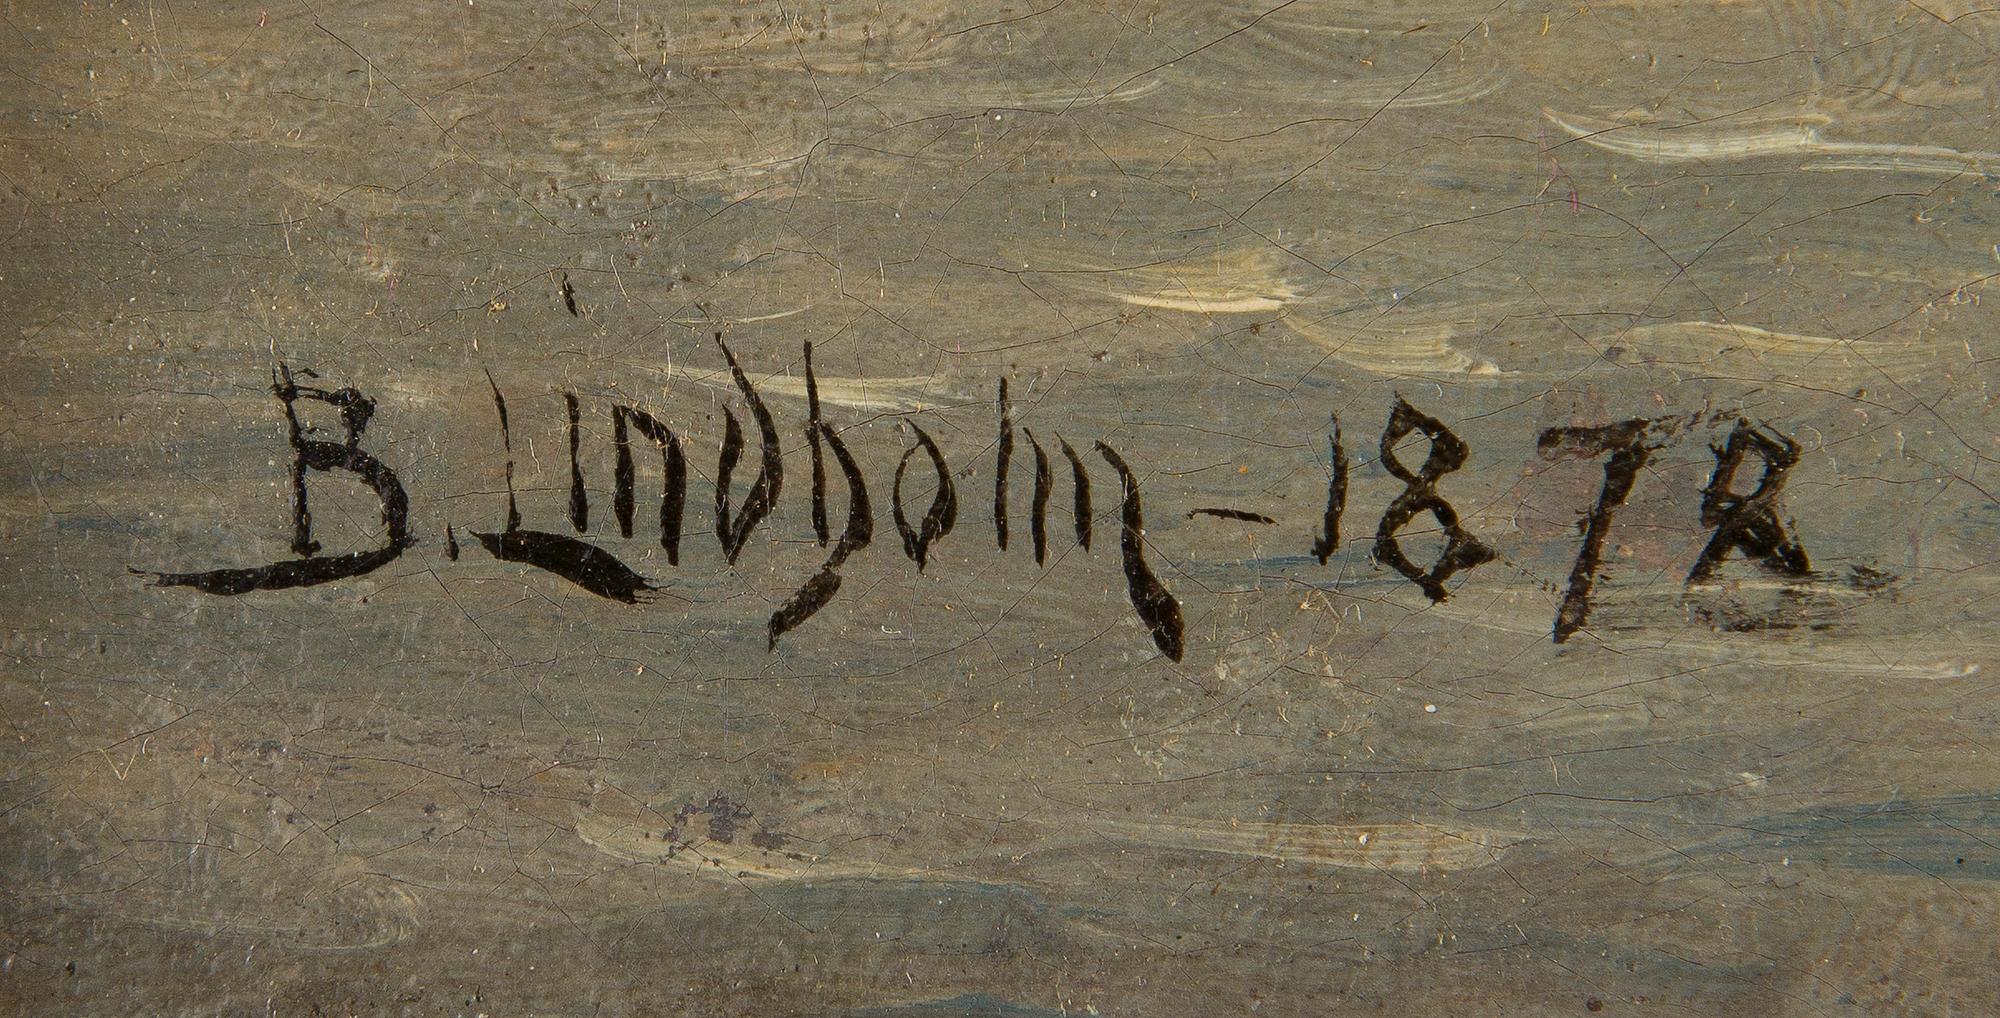 B. Lindholm - 1878